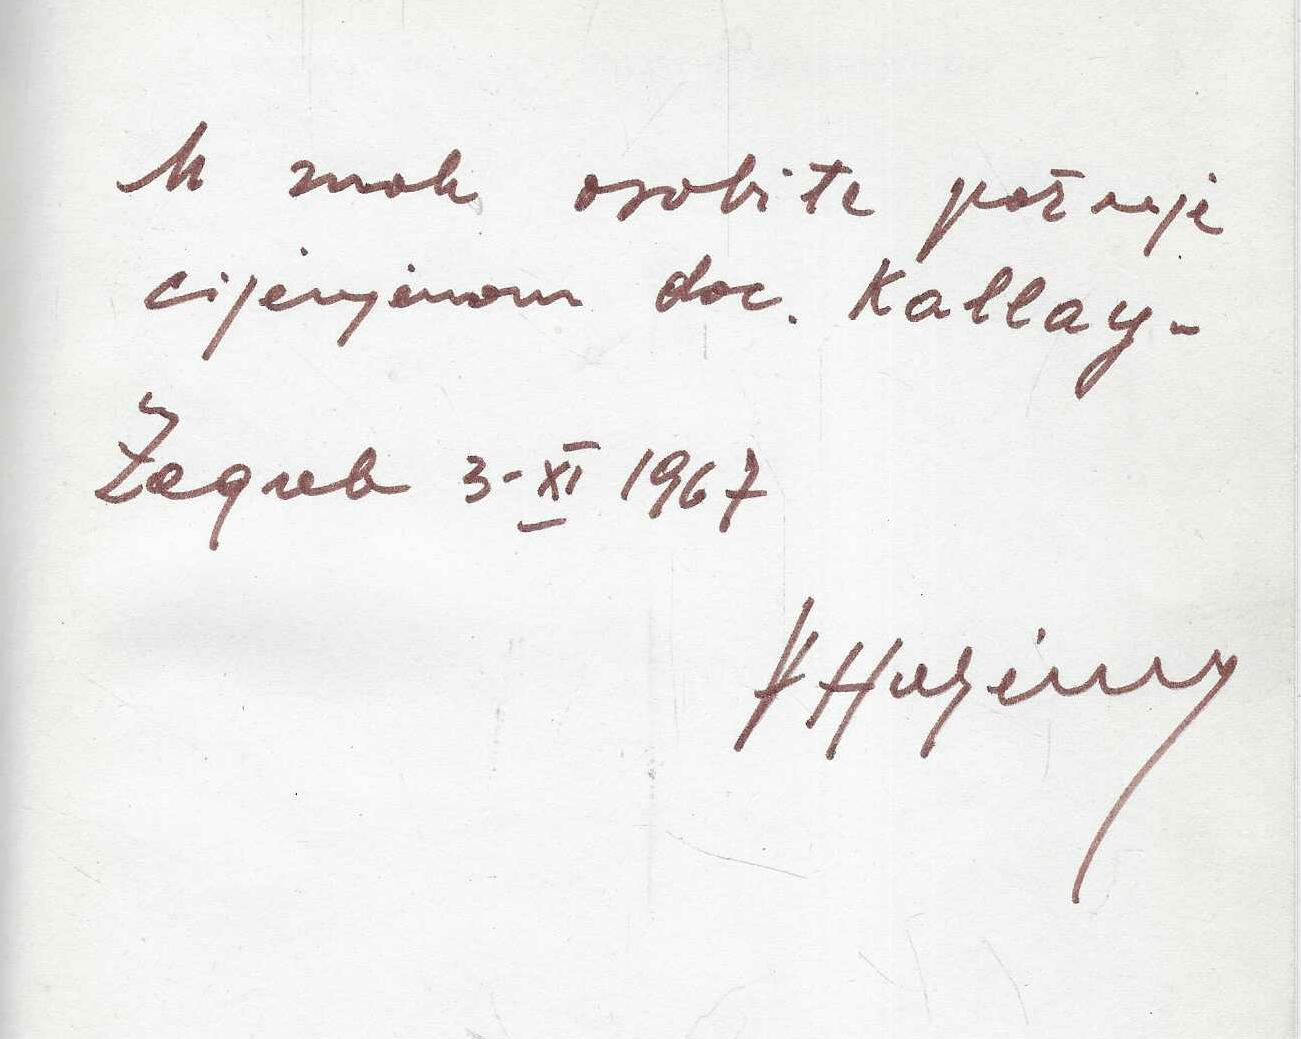 U znak osobite pažnje
cijenjenom doc. Kallay-
Zagreb 3-XI 1967